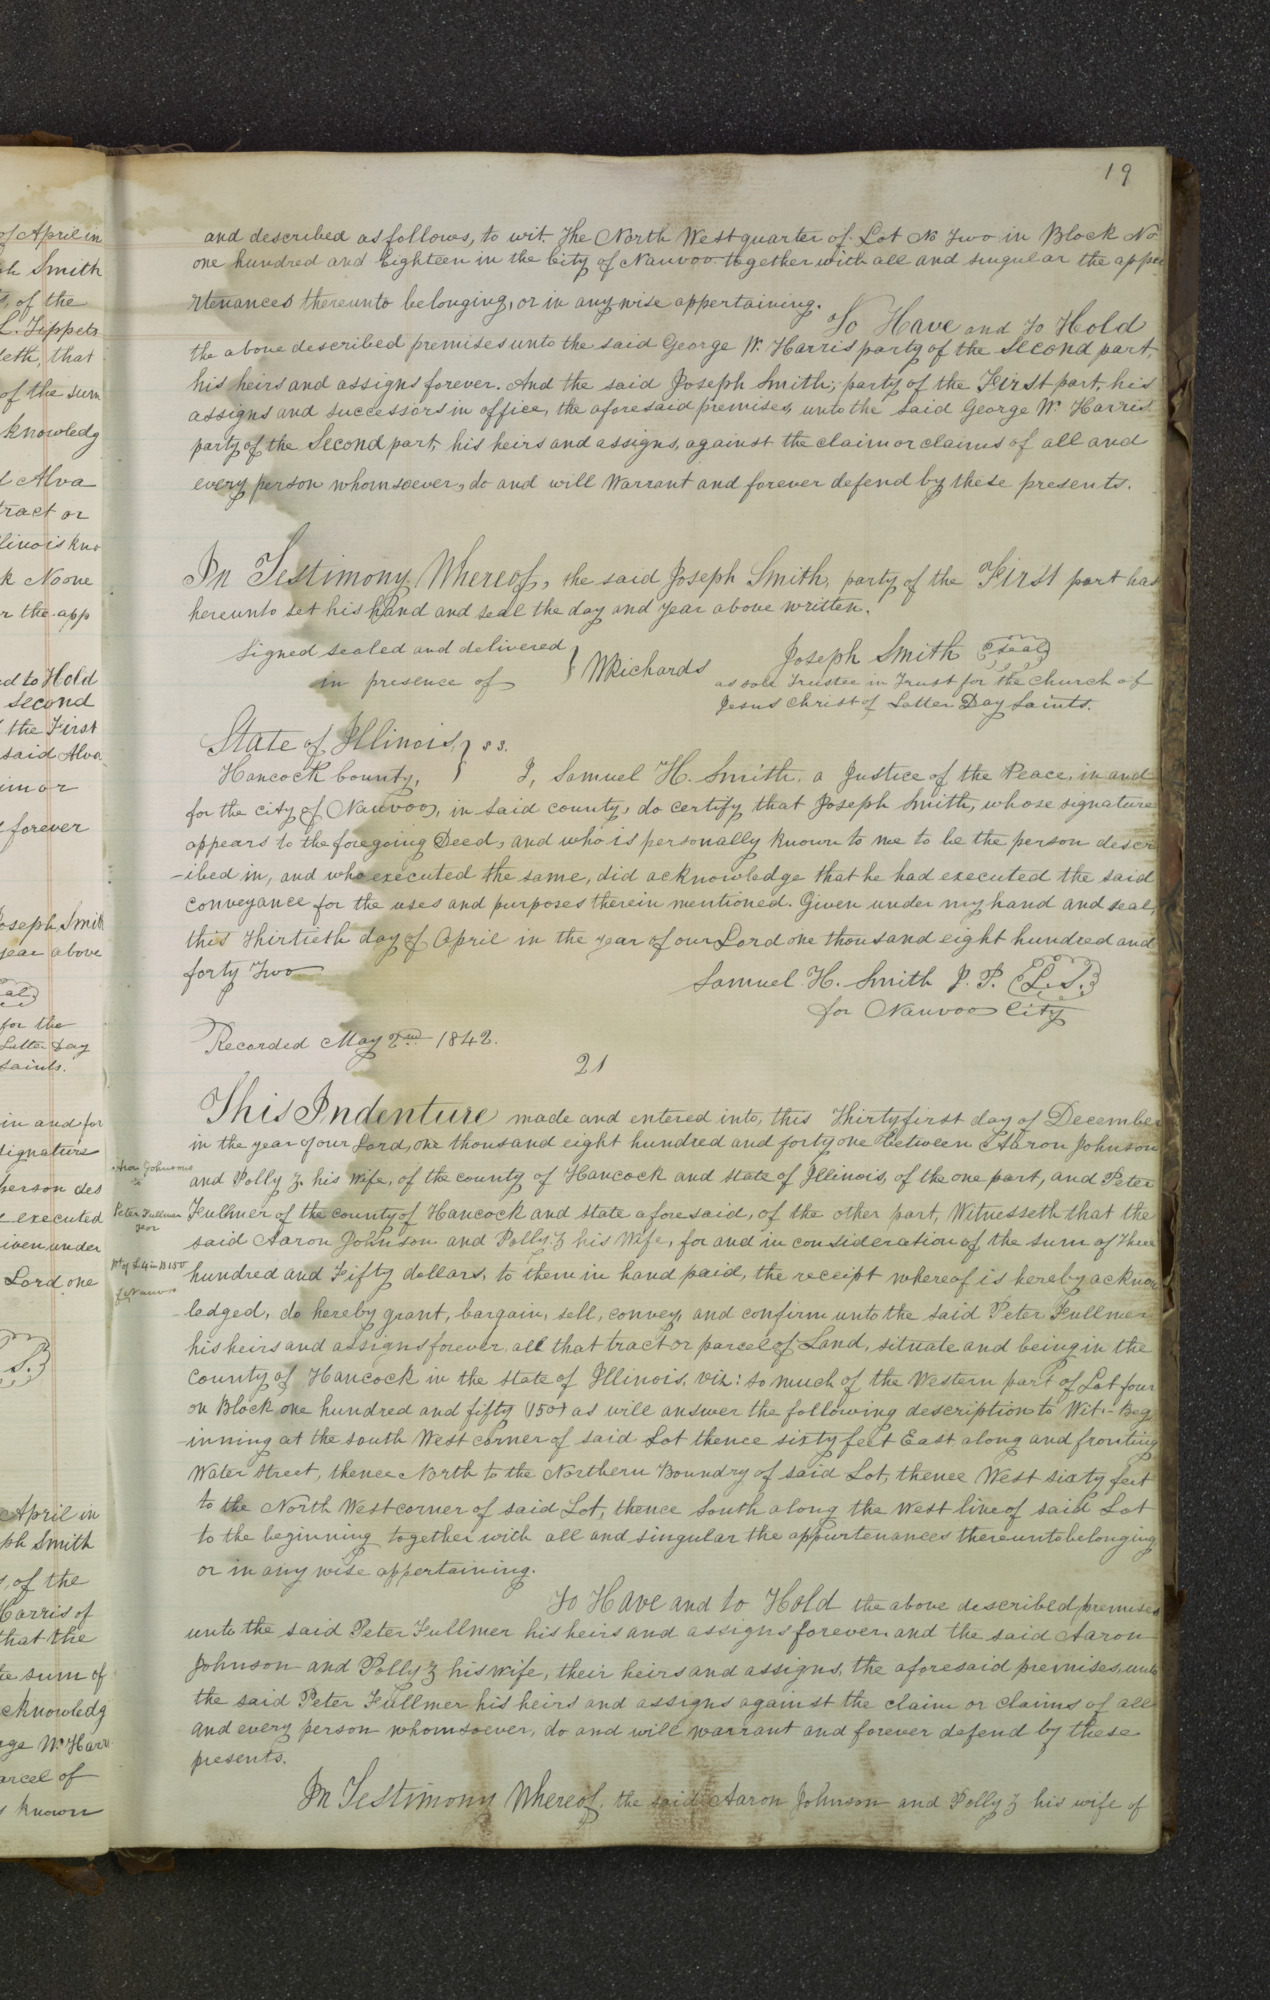 19
and described as follows, to wit. The North West quarter of Lot No Two in Block No
one hundred and Eighteen in the City of Nauvoo together with all and singular the appu
rtenances thereunto belonging, or in any wise appertaining.
To Have and To Hold
the above described premises unto the said George W. Harris party of the Second part,
his heirs and assigns forever. And the said Joseph Smith, party of the First part, his
assigns and successors in office, the aforesaid premises, unto the said George W. Harris
party of the Second part, his heirs and assigns, against the claim or claims of all and
every person whomsoever, do and will Warrant and forever defend by these presents.
In Testimony Whereof, the said Joseph Smith, party of the First part has
hereunto set his hand and seal the day and year above written.
Signed sealed and delivered } W Richards
in presence of
Joseph Smith (seal)
as sole Trustee in Trust for the Church of
Jesus Christ of Latter Day Saints.
State of Illinois, } s s.
Hancock County, I, Samuel H. Smith, a Justice of the Peace, in and
for the city of Nauvoo, in said county, do certify that Joseph Smith, whose signature
appears to the foregoing Deed, and who is personally known to me to be the person descr
-ibed in, and who executed the same, did acknowledge that he had executed the said
conveyance for the uses and purposes therein mentioned. Given under my hand and seal,
this Thirtieth day of April in the year of our Lord one thousand eight hundred and
forty Two
Samuel H. Smith J. P. (L. S.)
for Nauvoo City
Recorded May 2nd 1842.
21
This Indenture made and entered into, this Thirty first day of December
in the year of our Lord, one thousand eight hundred and forty one Between Aaron Johnson
and Polly Z. his Wife, of the county of Hancock and state of Illinois, of the one part, and Peter
Fullmer of the county of Hancock and State aforesaid, of the other part, Witnesseth that the
said Aaron Johnson and Polly Z his Wife, for and in consideration of the sum of Three
hundred and Fifty dollars, to them in hand paid, the receipt whereof is hereby acknow
-ledged, do hereby grant, bargain, sell, convey, and confirm unto the said Peter Fullmer
his heirs and assigns forever, all that tract or parcel of Land, situate and being in the
County of Hancock in the State of Illinois, viz: so much of the Western part of Lot four
on Block one hundred and fifty (150) as will answer the following description to Wit.- Beg
-inning at the south West corner of said Lot thence sixty feet East along and fronting
Water Street, thence North to the Northern Boundry of said Lot, thence West sixty feet
to the North West corner of said Lot, thence South along the West line of said Lot
to the beginning together with all and singular the appurtenances thereunto belonging
or in any wise appertaining.
To Have and to Hold the above described premises
unto the said Peter Fullmer his heirs and assigns forever and the said Aaron
Johnson and Polly Z his wife, their heirs and assigns, the aforesaid premises, unto
the said Peter Fullmer his heirs and assigns against the claim or claims of all
and every person whomsoever, do and will warrant and forever defend by these
presents.
In Testimony Whereof, the said Aaron Johnson and Polly Z his wife of
Peter Fullmer
of Nauvoo
of April in
Smith
of the
L. Tippets
that
of the sum
knowledg
Alva
tract or
linois kno
k No one
r the app
ed to Hold
Second
the First
said Alva
im or
forever
Joseph Smith
year above
for the
Latter Day
Saints.
in and for
signature
person des
executed
iven under
Lord one
April in
ph Smith
of the
Harris of
that the
sum of
cknowledg
rge W. Harr
arcel of
known